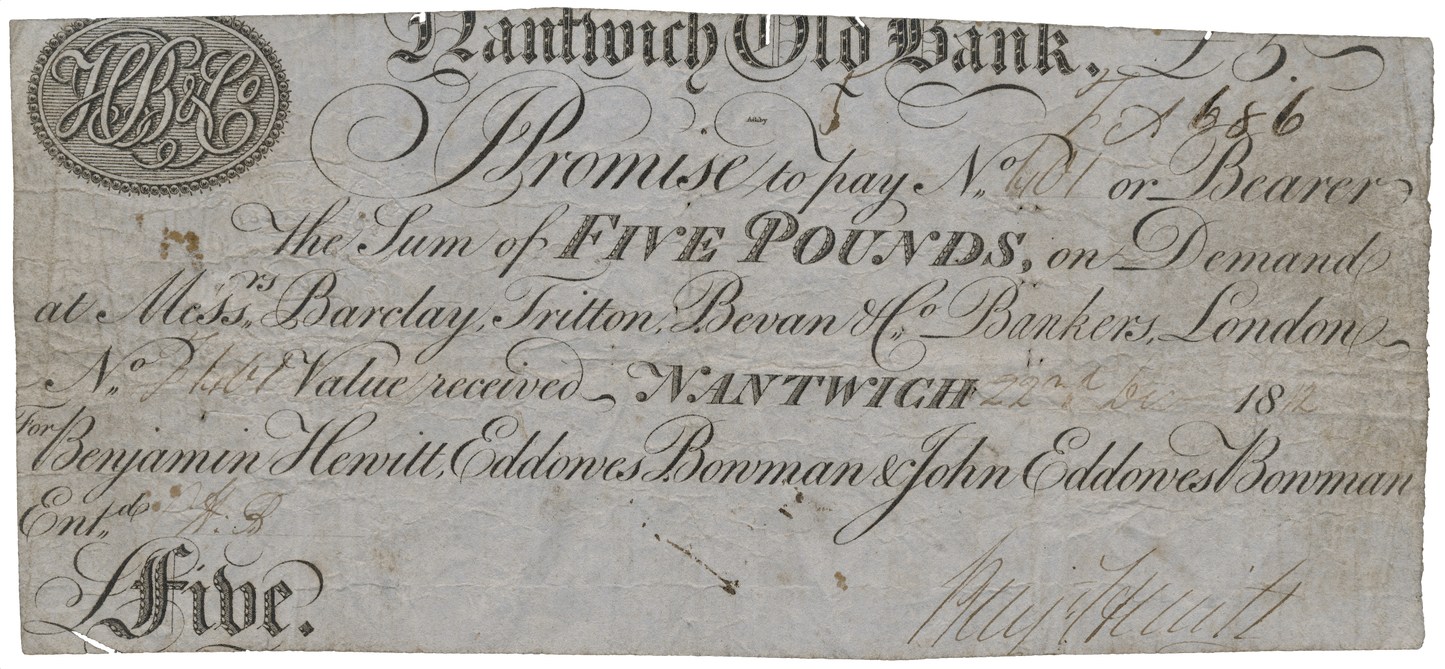 HB&Co
Nantwich Old Bank. £5.
Ashby
F A 686
I Promise to pay No. 681 or Bearer
the Sum of FIVE POUNDS, on Demand
at Messrs. Barclay, Tritton, Bevan & Co. Bankers, London
No. Value received NANTWICH 22nd De 1812
For Benjamin Hewitt, Eddowes Bowman & John Eddowes Bowman
Entd.
£Five. Benj Hewitt